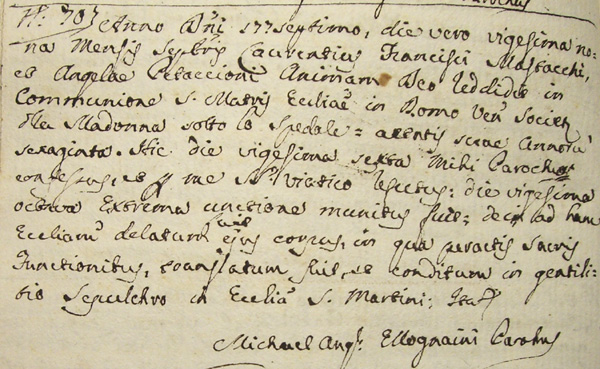 N: 707 Anno Dñi 177septimo, die vero vigesima no=
na Mensis Septris Laurentius Francisci Mostacchi,
et Angelae Petaccioni Animam Deo reddidit in
Communione S. Matris Eccliae in Domo Ven: Societ
della Madonna sotto lo Spedale = aetatis suae Annorũ
sexaginta. Hic die vigesima sexta Mihi Parocho
confessus, et p me SSo: Viatico refectus: die vigesima
octava Extrema unctione munitus fuit: dein ad hanc
Eccliam delatum fuit ejus corpus, in qua peractis sacris
Functionibus, translatum fuit, et conditum in gentili=
tio Sepulchro in Ecclia S. Martini: Ita
Michael Ang: Parochus